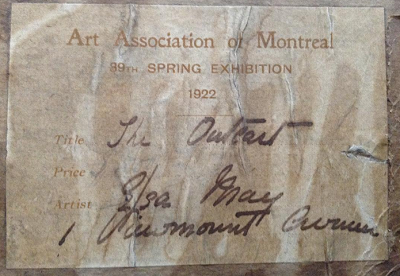 Art Association of Montreal
39TH SPRING EXHIBITION
1922
Title The Outcast
Price
Artist Elsa May
1 Viewmount Avenue